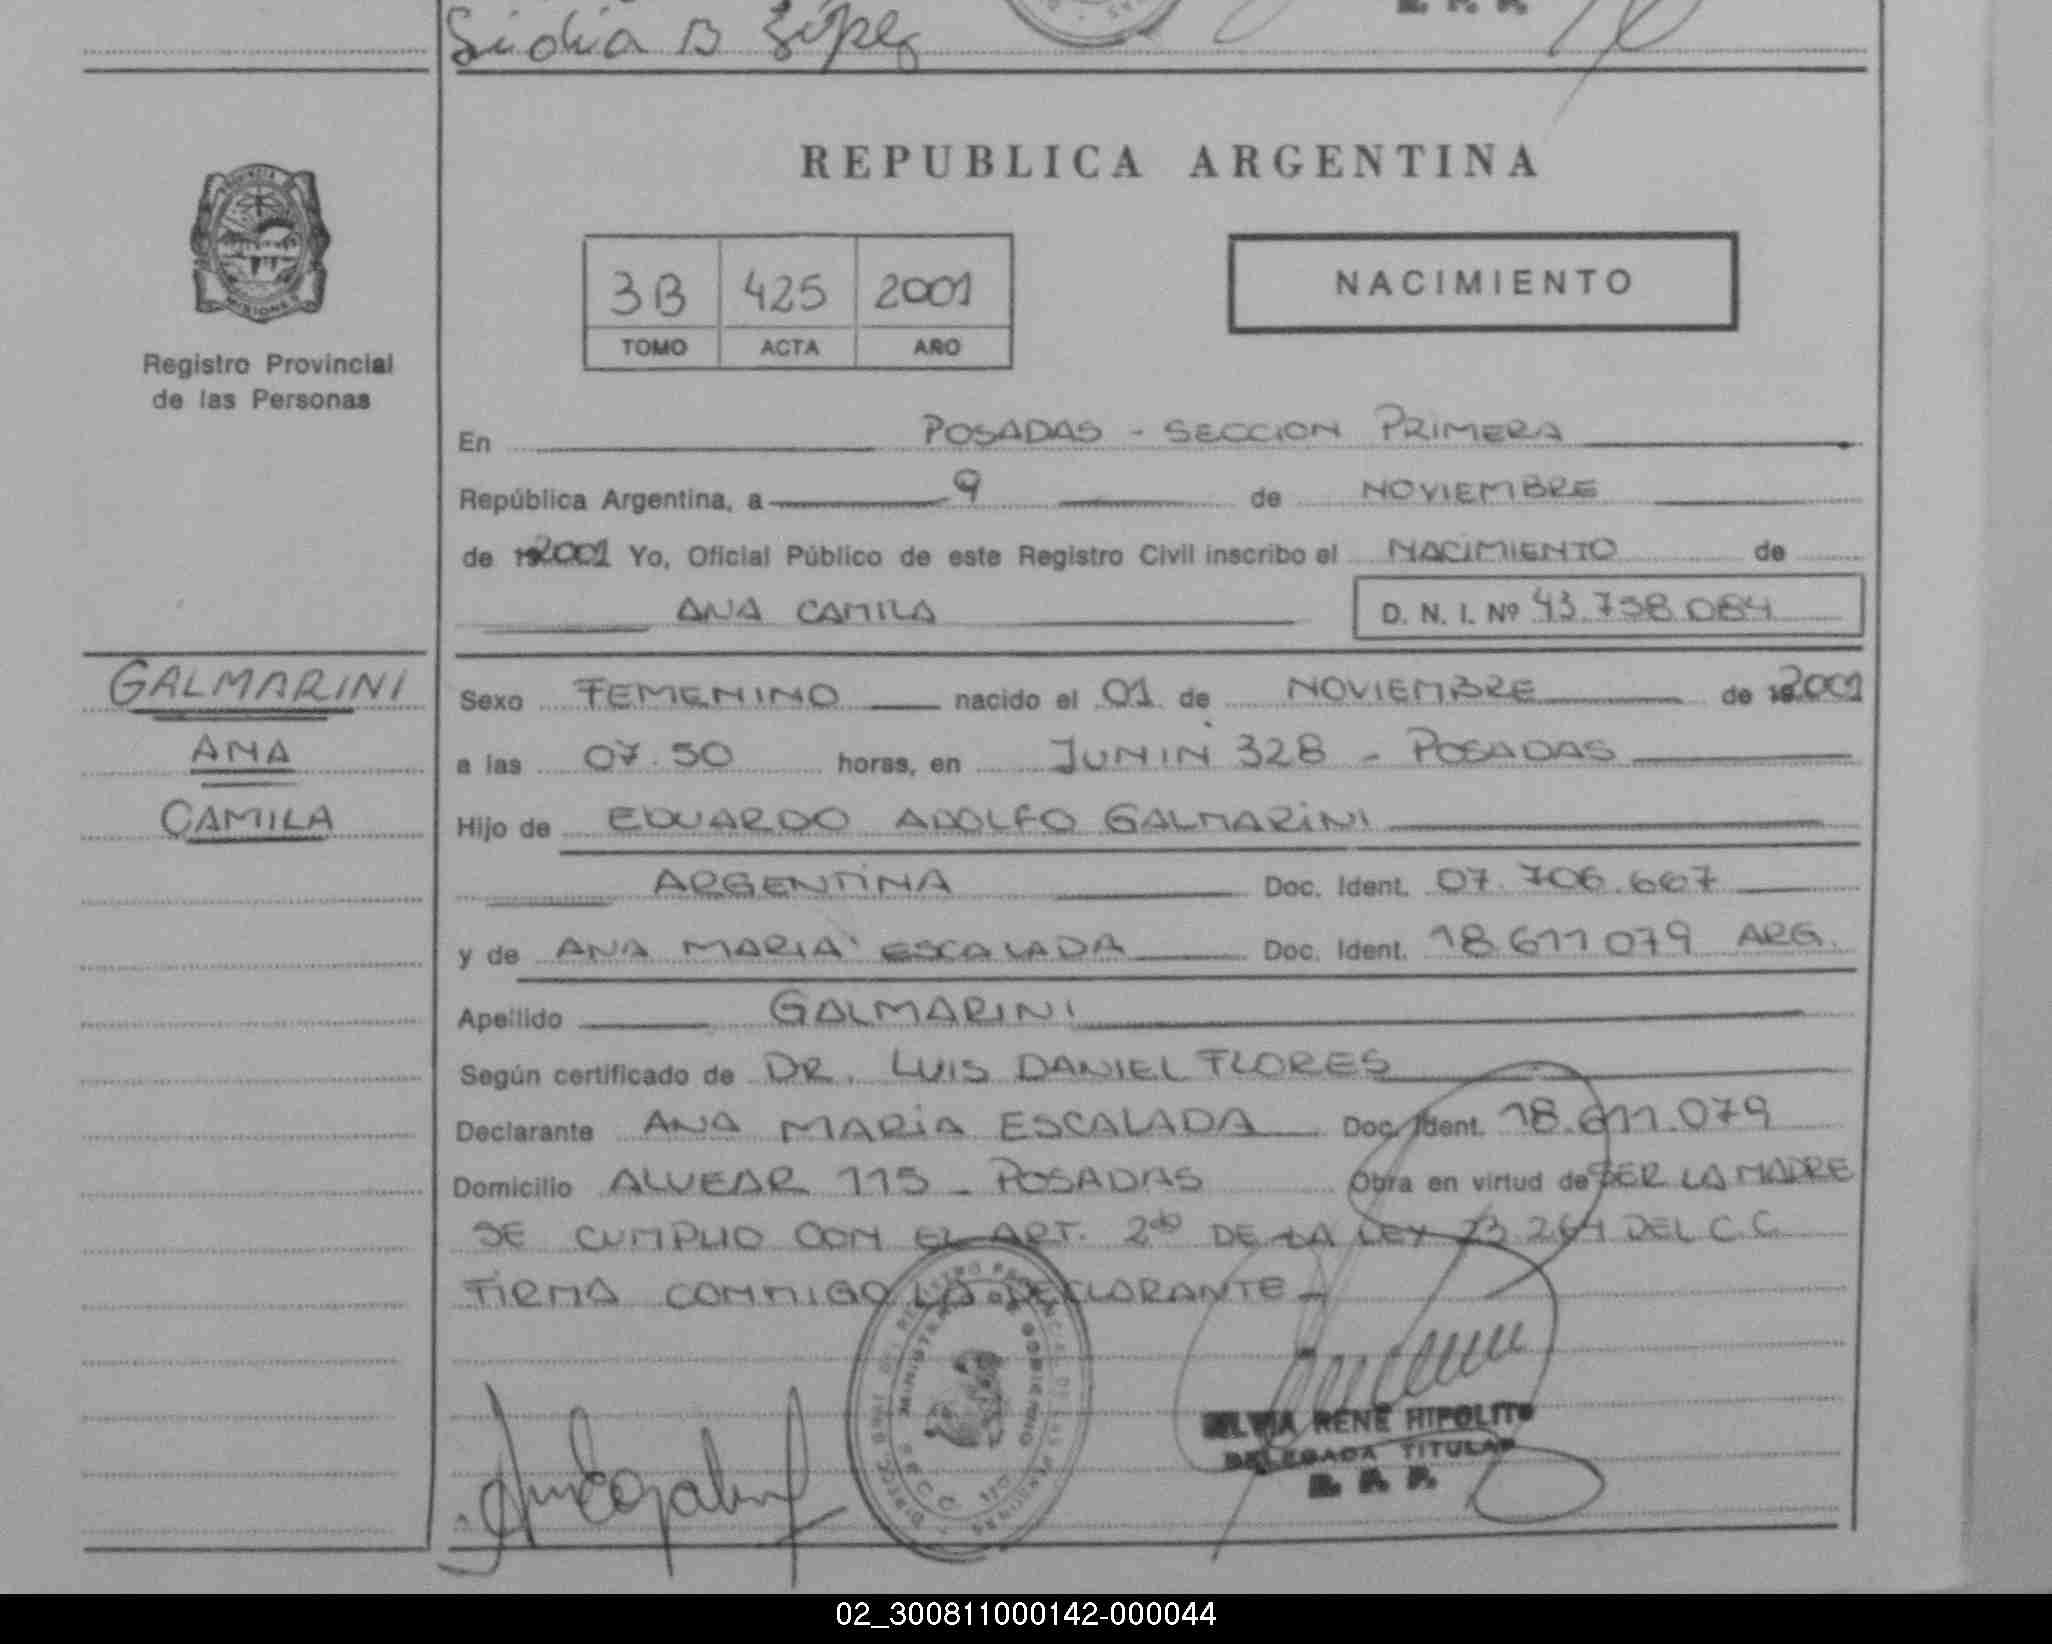 Lidia B López
REPUBLICA ARGENTINA
PROVINCIA
MISIONES
Registro Provincial
de las Personas
3B 425 2001
TOMO ACTA AÑO
NACIMIENTO
En POSADAS - SECCION PRIMERA
República Argentina, a 9 de NOVIEMBRE
de 192001 Yo, Oficial Público de este Registro Civil inscribo el NACIMIENTO de
ANA CAMILA D. N. I. Nº 43.738.084
GALMARINI
ANA
CAMILA
Sexo FEMENINO nacido el 01 de NOVIEMBRE de 192001
a las 07.50 horas, en JUNIN 328 - POSADAS
Hijo de EDUARDO ADOLFO GALMARINI
ARGENTINA Doc. Ident. 07.706.667
y de ANA MARIA ESCALADA Doc. Ident. 18.611.079 ARG.
Apellido GALMARINI
Según certificado de DR. LUIS DANIEL FLORES
Declarante ANA MARIA ESCALADA Doc. Ident. 18.611.079
Domicilio ALVEAR 115 - POSADAS Obra en virtud de SER LA MADRE
SE CUMPLIO CON EL ART. 2do DE LA LEY 23.264 DEL C.C.
FIRMA CONMIGO LA DECLARANTE -
SILVIA RENE HIPOLITO
DELEGADA TITULAR
R. P. P.
02_300811000142-000044